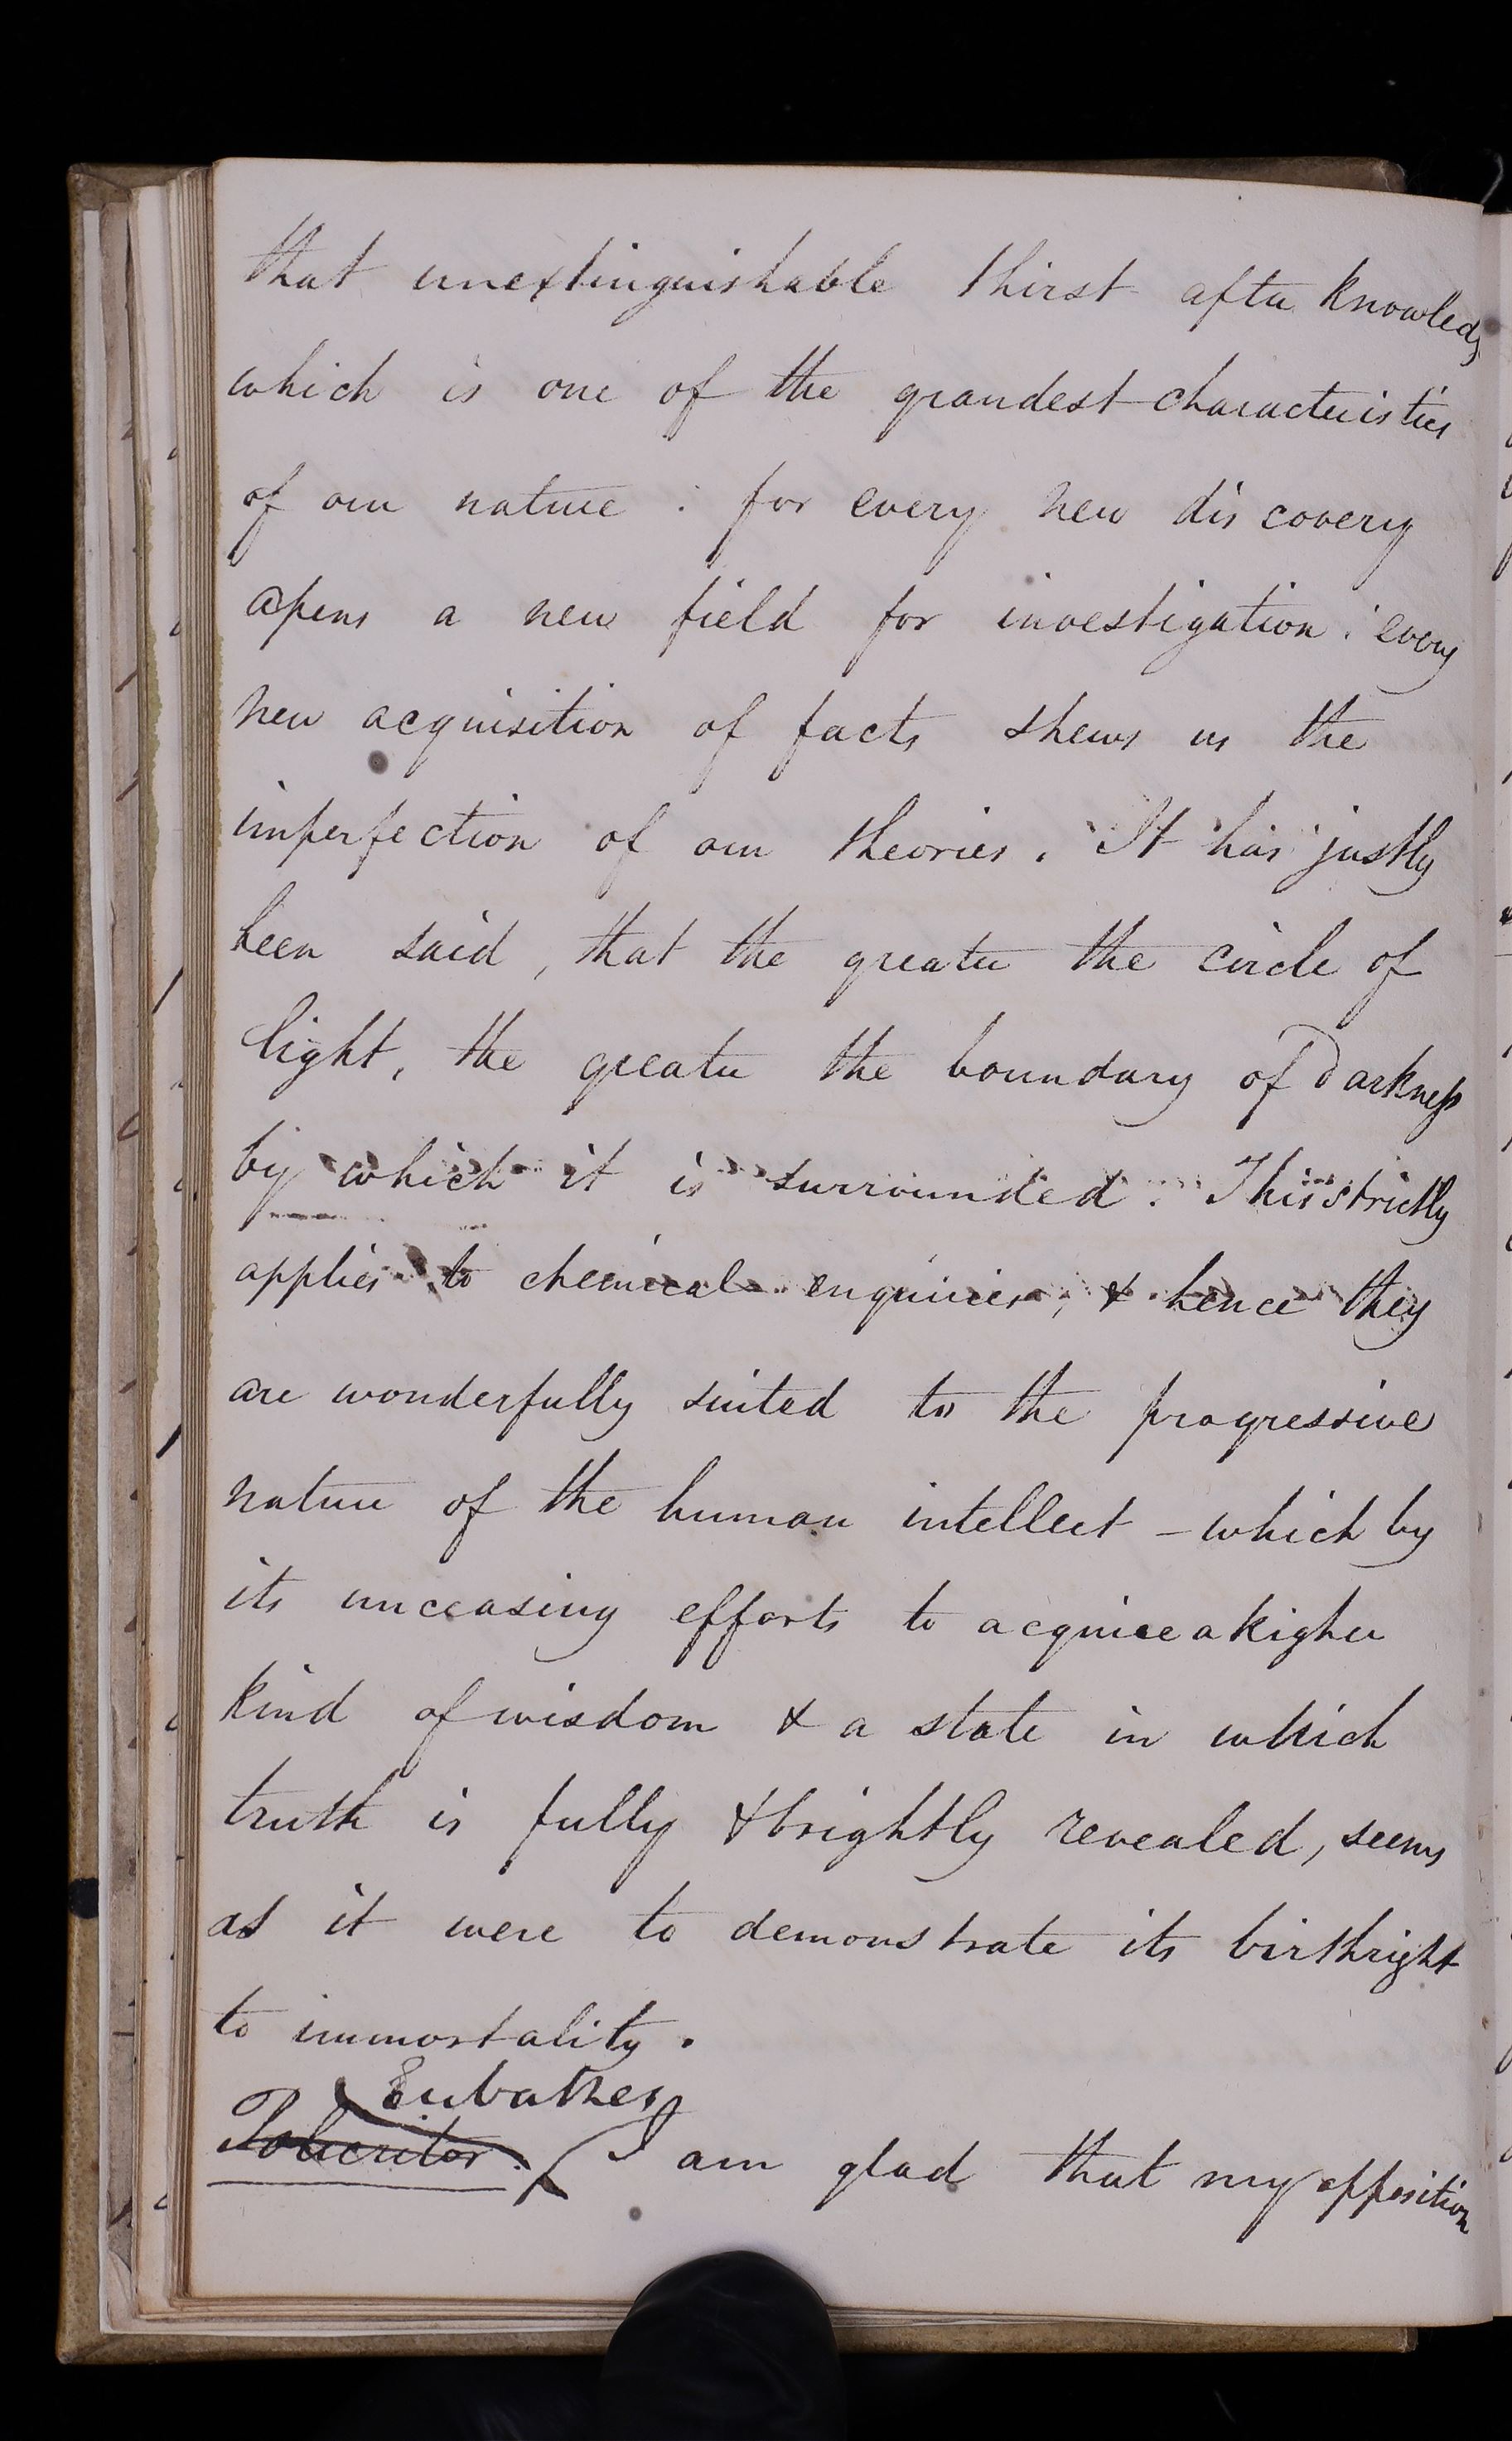 that unextinguishable thirst after knowledg
which is one of the grandest characteristics
of our nature : for every new discovery
opens a new field for investigation : every
new acquisition of facts shews us the
imperfection of our theories. It has justly
been said, that the greater the circle of
light, the greater the boundary of Darkness
by which it is surrounded. This strictly
applies to chemical enquiries, & hence they
are wonderfully suited to the progressive
nature of the human intellect – which by
its unceasing efforts to acquire a higher
kind of wisdom & a state in which
truth is fully & brightly revealed, seems
as it were to demonstrate its birthright
to immortality.
Eubathes
I am glad that my opposition